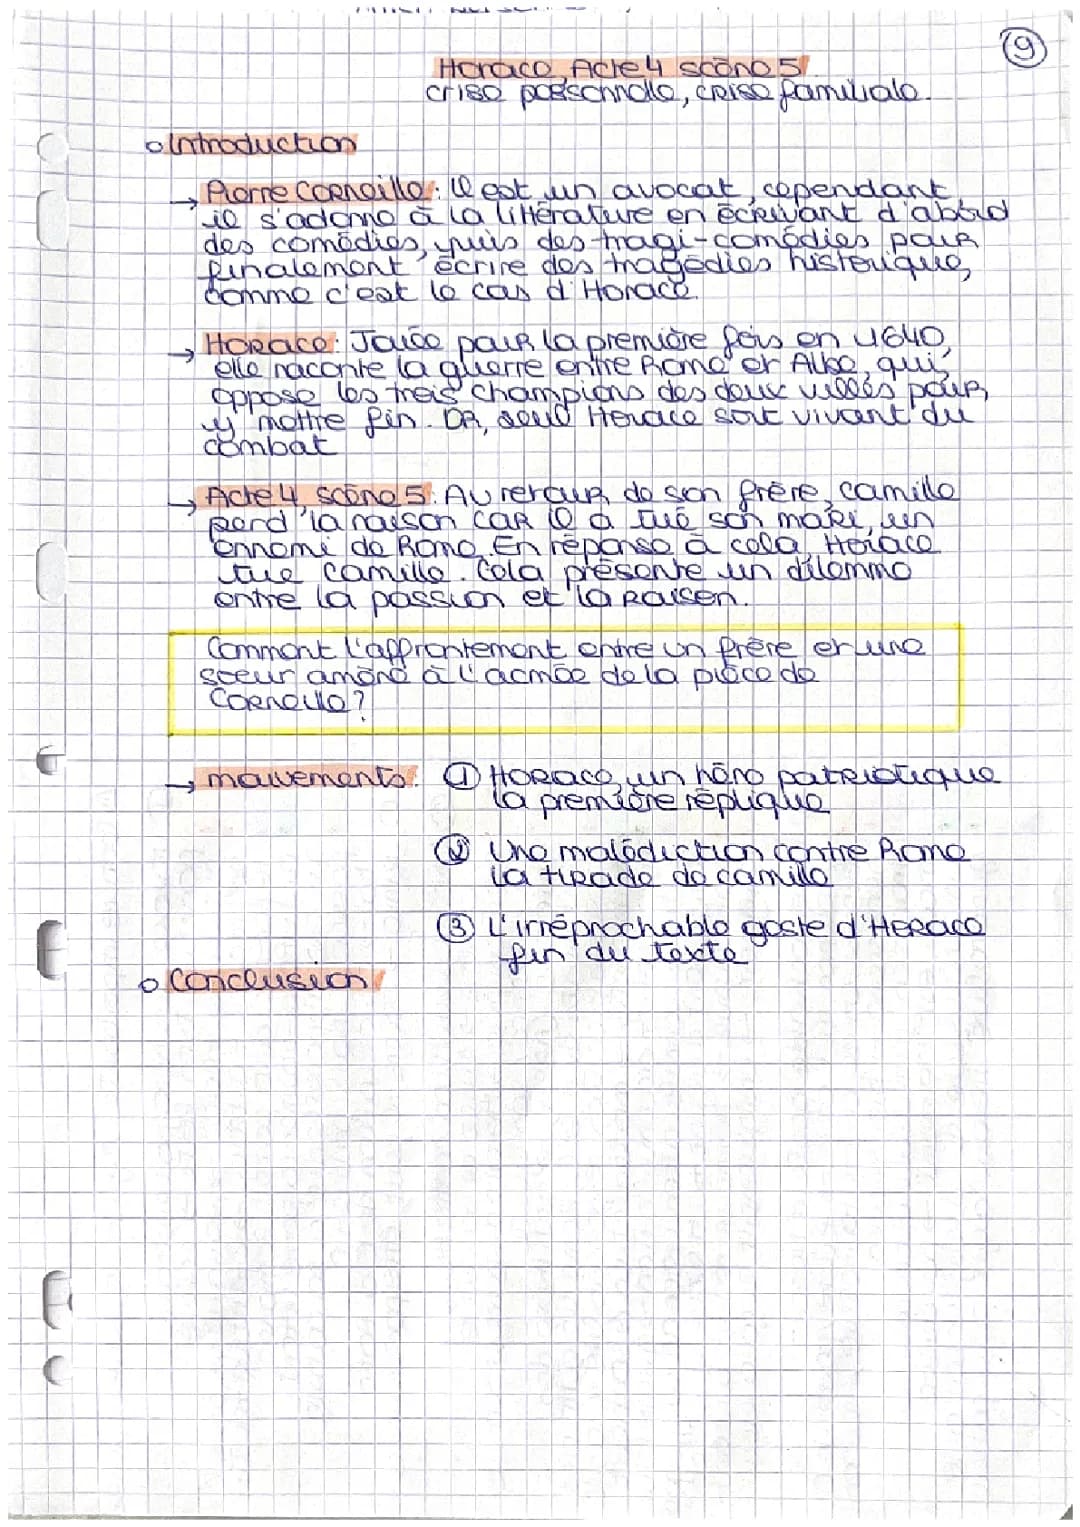 9
Horace, Acte 4 scène 5
crise personnelle, crise familiale.
Introduction
→ Pierre Corneille : Il est un avocat, cependant
il s'adonne à la littérature en écrivant d'abord
des comédies, puis des tragi-comédies pour
finalement écrire des tragédies historique,
comme c'est le cas d'Horace.
→ Horace : Jouée pour la première fois en 1640,
elle raconte la guerre entre Rome et Albe, qui
oppose les trois champions des deux villes pour
y mettre fin. Or, seul Horace sort vivant du
combat
→ Acte 4, scène 5 : Au retour de son frère, camille
perd la raison car il a tué son mari, un
ennemi de Rome. En réponse à cela, Horace
tue Camille. Cela présente un dilemme
entre la passion et la raison.
Comment l'affrontement entre un frère et une
soeur amène à l'acmée de la pièce de
Corneille ?
→ mouvements : ① Horace, un héro patriotique
la première réplique
② Une malédiction contre Rome
la tirade de camille
③ L'irréprochable geste d'Horace
fin du texte
Conclusion